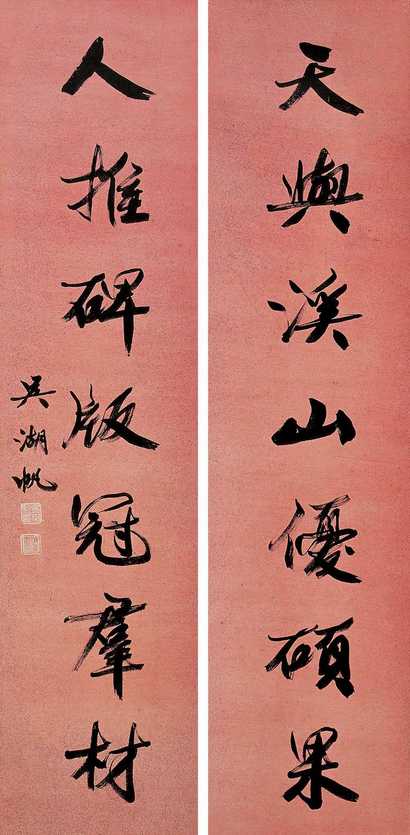 天與溪山優碩果
人推碑版冠羣材
吳湖帆